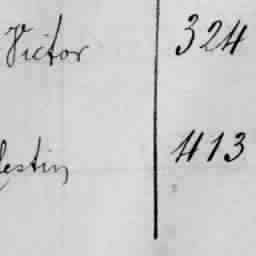 Victor 324
lestin 413